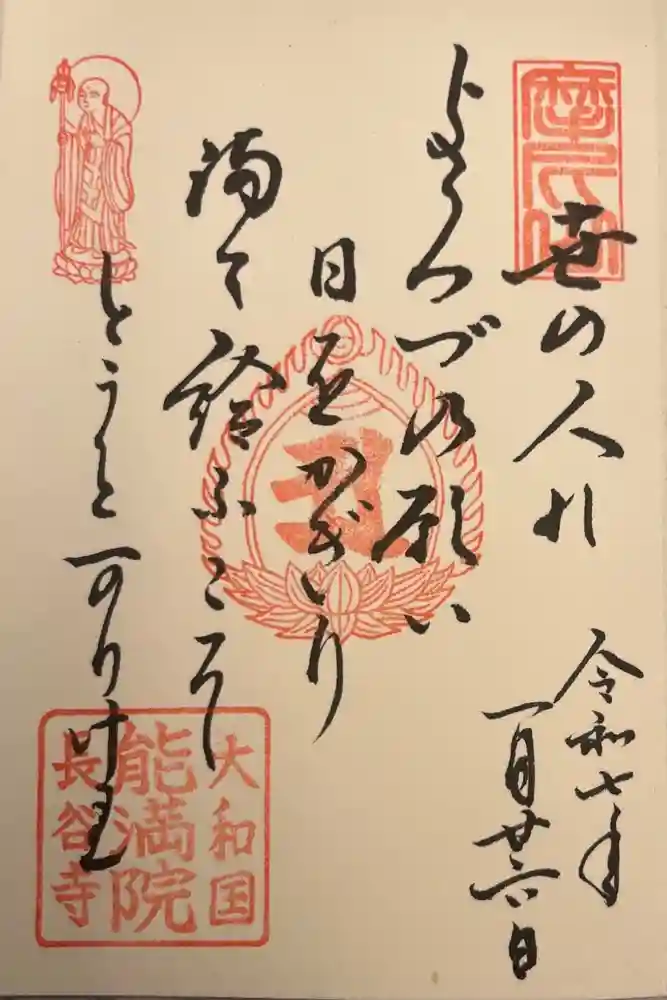 摩尼山
世の人の
よろづの願い
日をかぎり
満て給ふこそ
とうとかりけれ
令和七年
一月廿六日
大和国
能満院
長谷寺